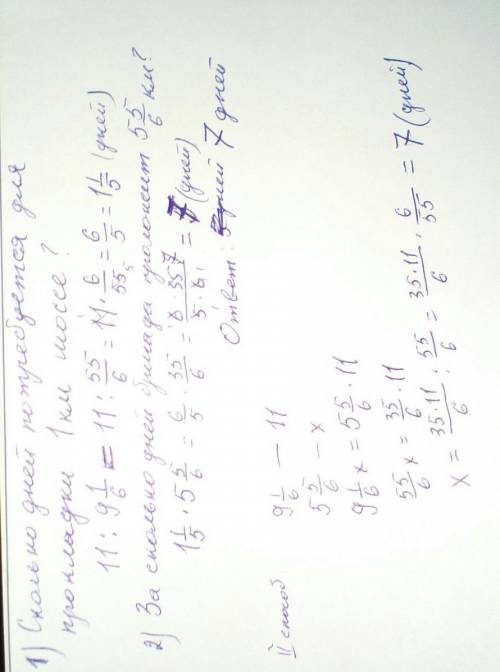 1) Сколько дней потребуется для
прокладки 1 км шоссе?
11 : 9 1/6 = 11 : 55/6 = 11 · 6/55 = 6/5 = 1 1/5 (дней)
2) За сколько дней бригада проложит 5 5/6 км?
1 1/5 · 5 5/6 = 6/5 · 35/6 = 6 · 35 7/5 · 6 1 = 7 (дней)
Ответ: 7 дней
II способ.
9 1/6 — 11
5 5/6 — x
9 1/6 x = 5 5/6 · 11
55/6 x = 35/6 · 11
x = 35·11/6 : 55/6 = 35·11/6 · 6/55 = 7 (дней)